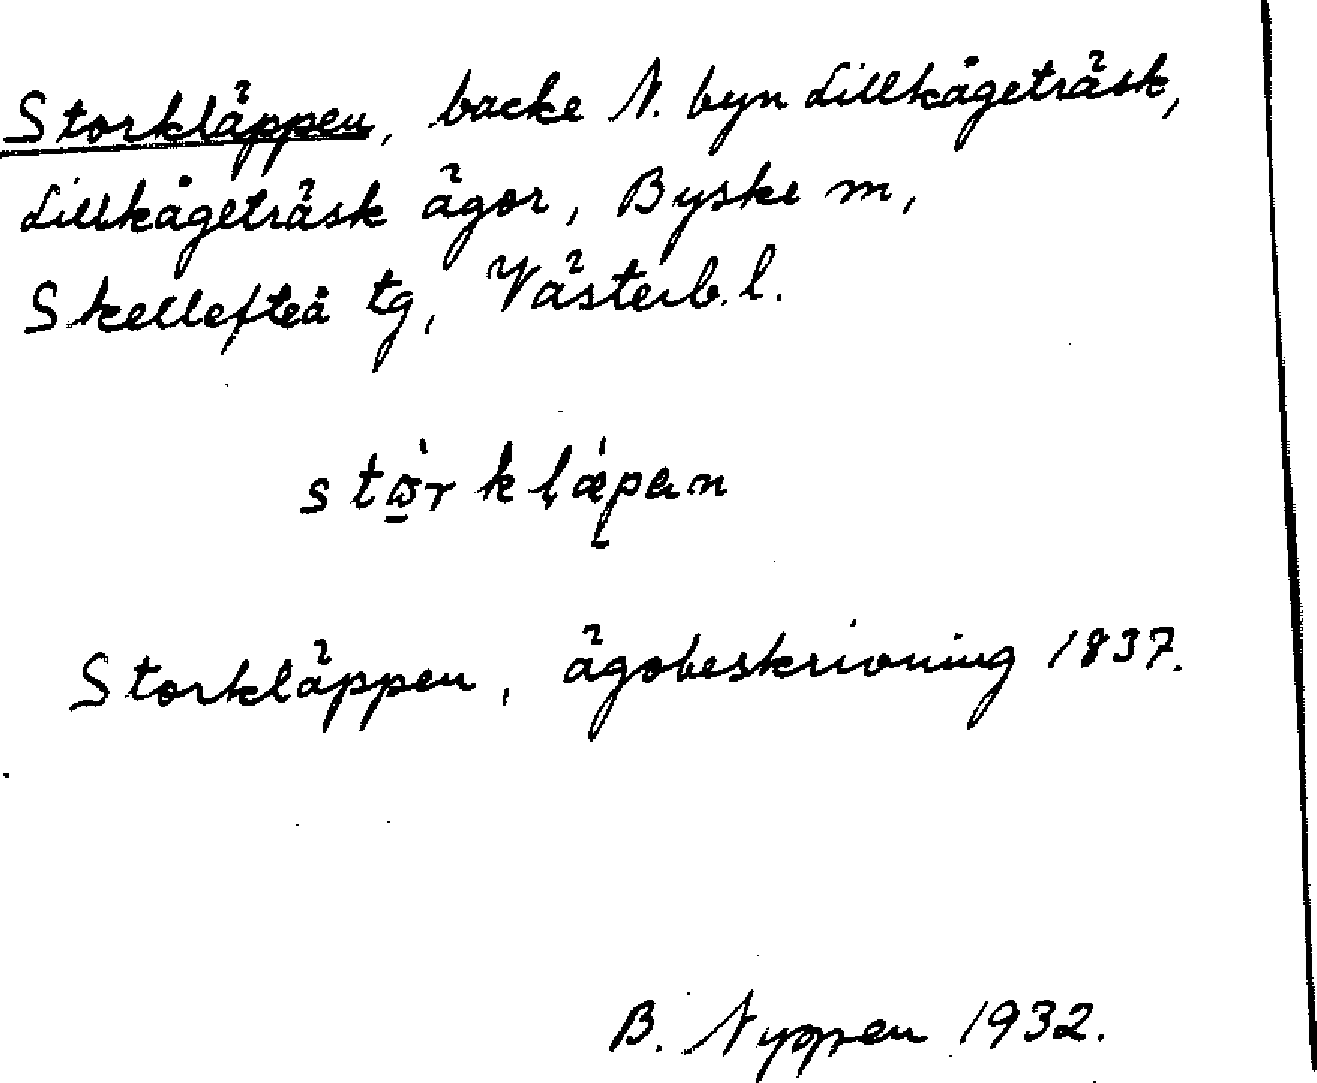 Storkläppen, backe N. byn Lillkågeträsk,
Lillkågeträsk ägor, Byske m,
Skellefteå tg, Västerb. l.
Storkläppen, ägobeskrivning 1837.
B. Nyppen 1932.